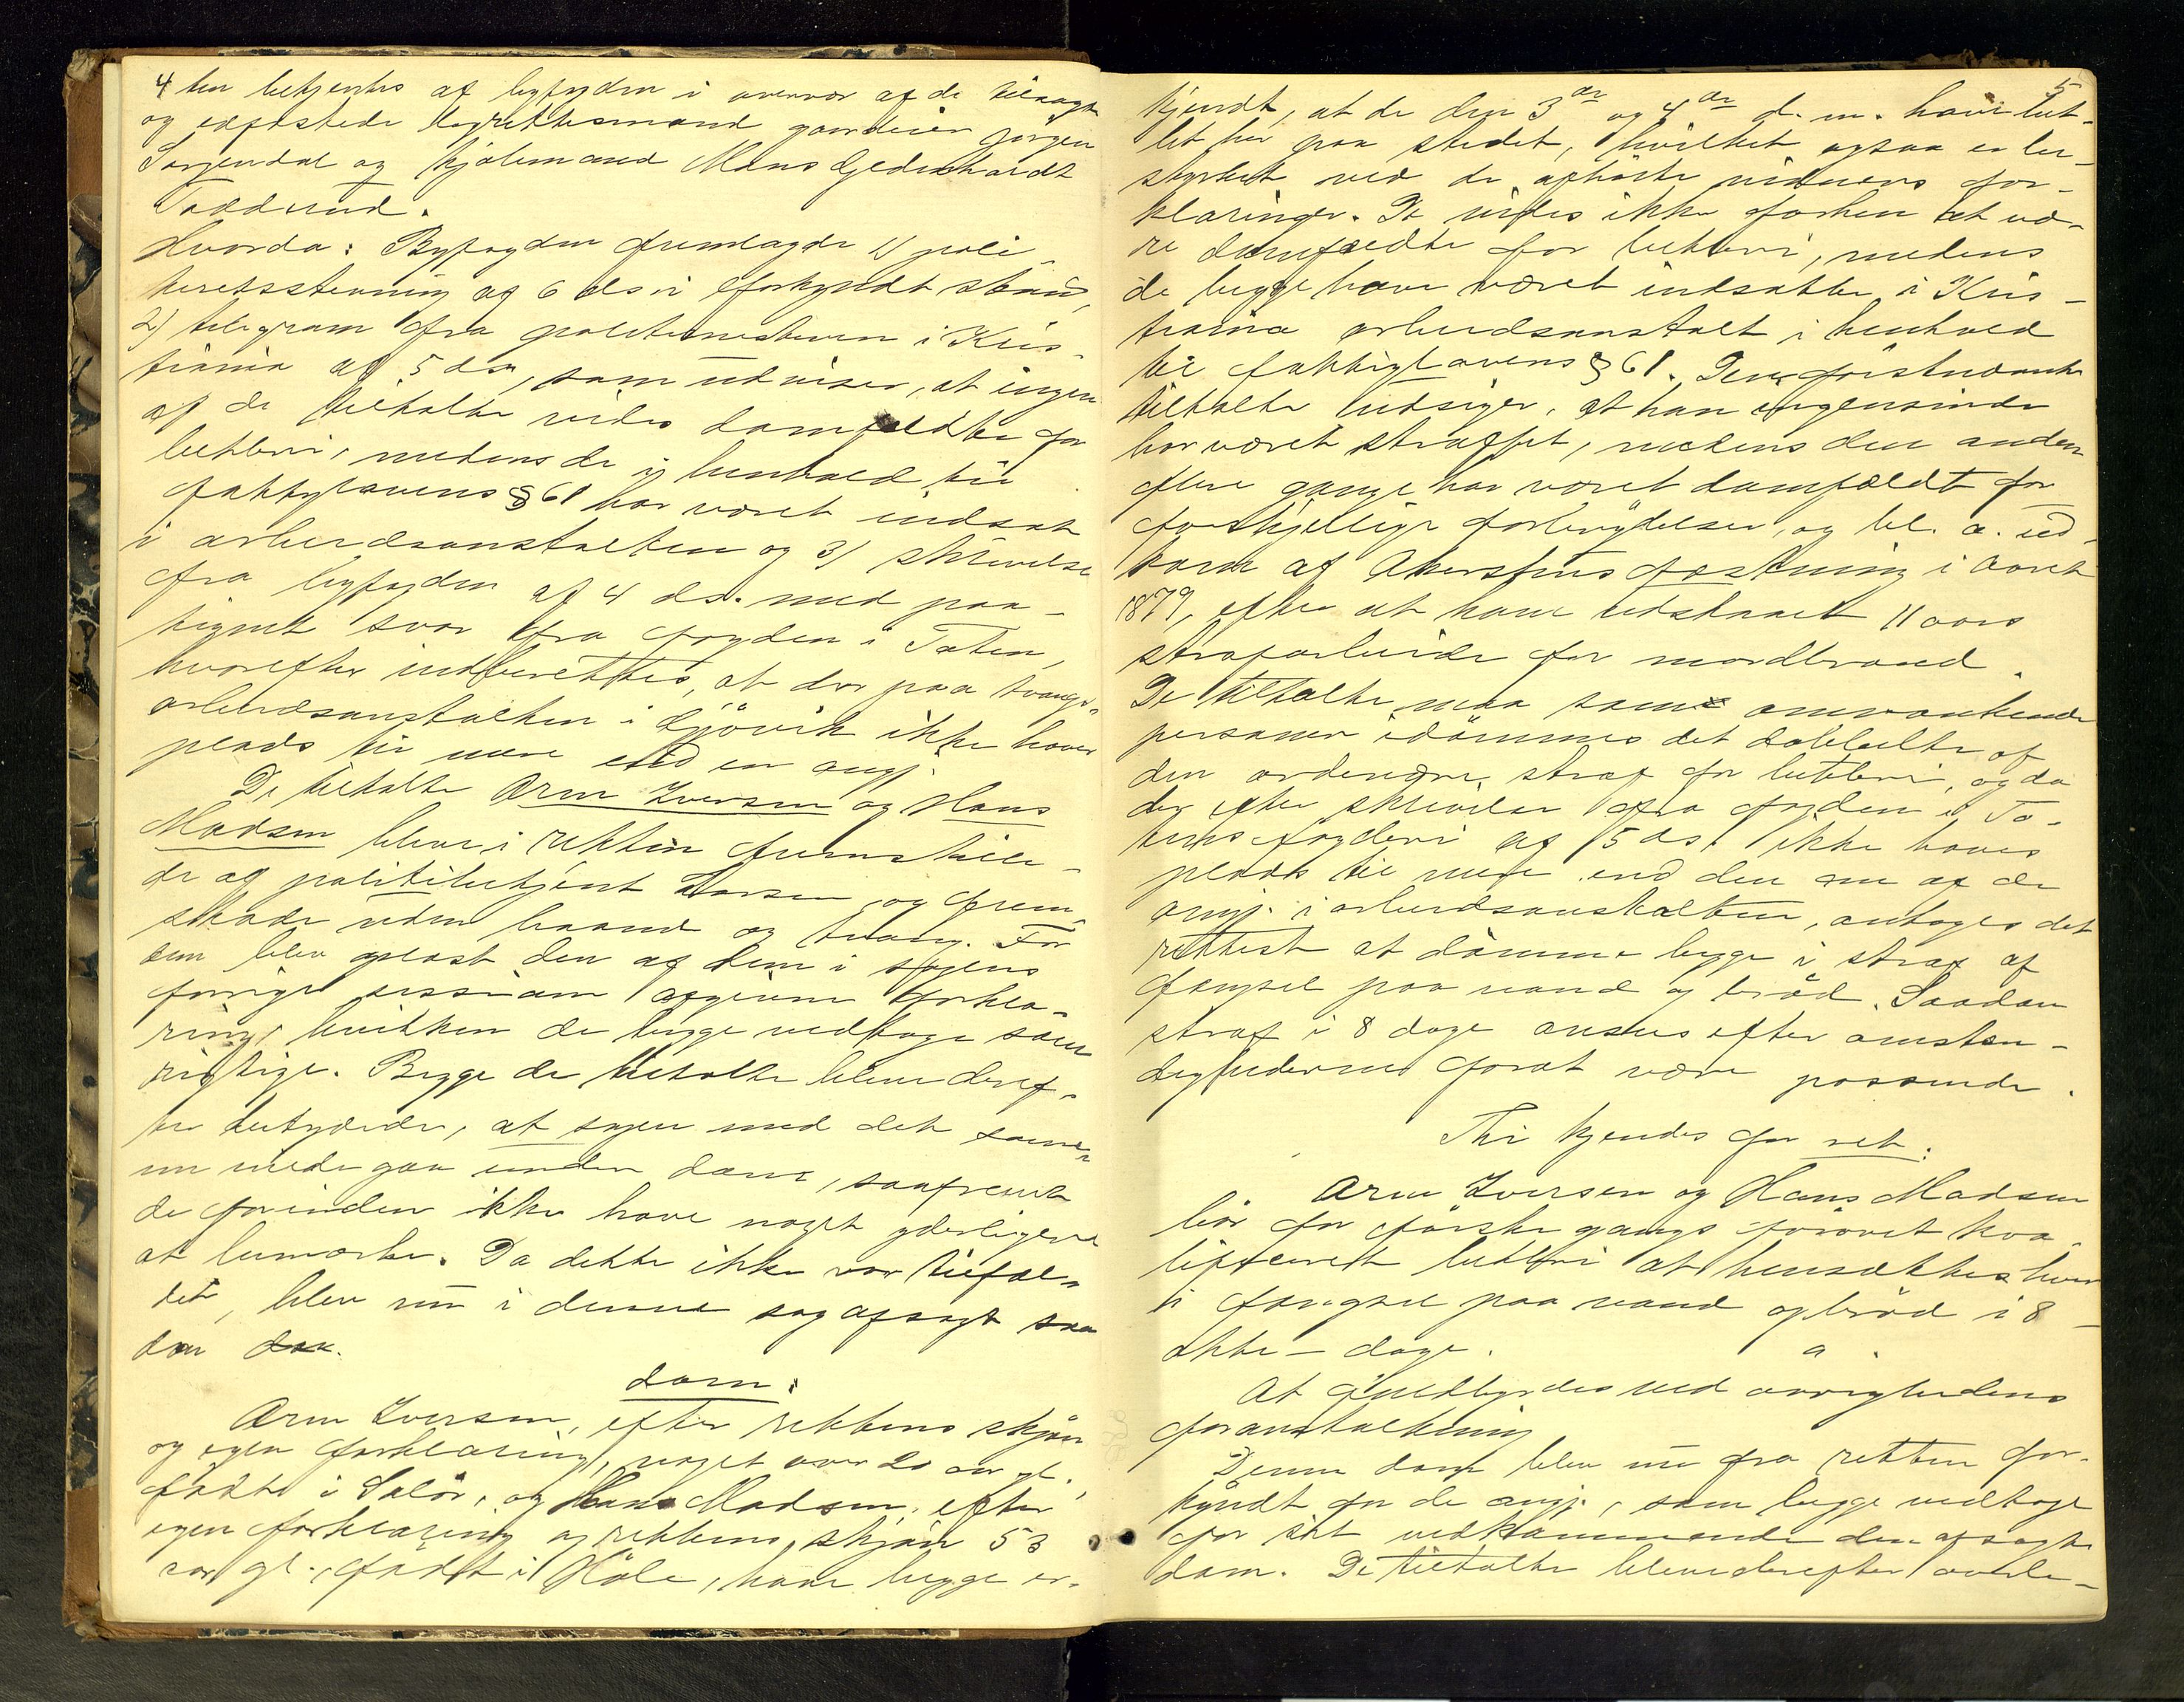 4
ten betjentes af byfogden i overvær af de tilsagte
og edfæstede lagrettesmænd gaardeier Jörgen
Sorgendal og hjolemand Mons Gedenhardt
Taddrud.
Hvorda: Byfogden fremlagde 1) poli-
tiretsstevning af 6 ds. i forkyndt stand,
2) telegram fra politimesteren i Kris-
tiania af 5 ds., som udviser, at ingen
af de tiltalte vides domfældte for
betleri, medens de i henhold til
fattiglovens § 61 har været indsat
i arbeidsanstalten og 3) skrivelse
fra byfogden af 4 ds. med paa-
tegnet svar fra fogden i Toten,
hvorefter indberettes, at der paa tvangs-
arbeidsanstalten i Gjövik ikke haves
plads til mere end en angj.
De tiltalte Arne Iversen og Hans
Madsen bleve i retten fremstille-
de af politibetjent Larsen og frem-
stode uden baand og tvang. For
dem blev oplæst den af dem i sagens
forrige session afgivne forkla-
ring, hvilken de begge vedtoge som
rigtige. Begge de tiltalte bleve deref-
ter betydede, at sagen med det sam-
me vilde gaa under dom, saafremt
de forinden ikke have noget yderligere
at bemærke. Da dette ikke var tilfæl-
det, blev nu i denne sag afsagt saa
dan dok.
dom:
Arne Iversen, efter rettens skjön
og egen forklaring, noget over 20 aar gl.,
födt i Solör, og Hans Madsen, efter
egen forklaring og rettens skjön 53
aar gl., födt i Hole, have begge er-
5
kjendt, at de den 3die og 4de d. m. have bet-
let her paa stedet, hvilket ogsaa er be-
styrket ved de afhörte vidners for-
klaringer. De vides ikke forhen at væ-
re domfældte for betleri, medens
de begge have været indsatte i Kris-
tiania arbeidsanstalt i henhold
til fattiglovens § 61. Den förstnævnte
tiltalte udsiger, at han ingensinde
har været straffet, medens den anden
flere gange har været domfældt for
forskjellige forbrydelser, og bl. a. ud-
kom af Akershus fæstning i aaret
1879, efter at have udstaaet 11 aars
strafarbeide for mordbrand.
De tiltalte maa som omvankende
personer idömmes det dobbelte af
den ordenære straf for betleri, og da
der efter skrivelse fra fogden i To-
tens fogderi af 5 ds. ikke haves
plads til mere end den ene af de
angj. i arbeidsanstalten, antages det
rettest at dömme begge i straf af
fængsel paa vand og bröd. Saadan
straf i 8 dage ansees efter omsten-
dighederne forat være passende.
Thi kjendes for ret:
Arne Iversen og Hans Madsen
bör for förste gangs forövet kva-
lificeret betleri at hensættes hver
i fængsel paa vand og bröd i 8 -
otte - dage.
At fuldbyrdes ved övrighedens
foranstaltning
Denne dom blev nu fra retten for-
kyndt for de angj., som begge vedtoge
for sit vedkommende den afsagte
dom. De tiltalte bleve derefter overle-